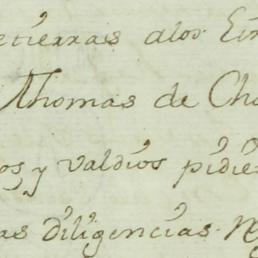 etierras alos
Thomas de Cho
os y valdios pidie
as diligencias. Re